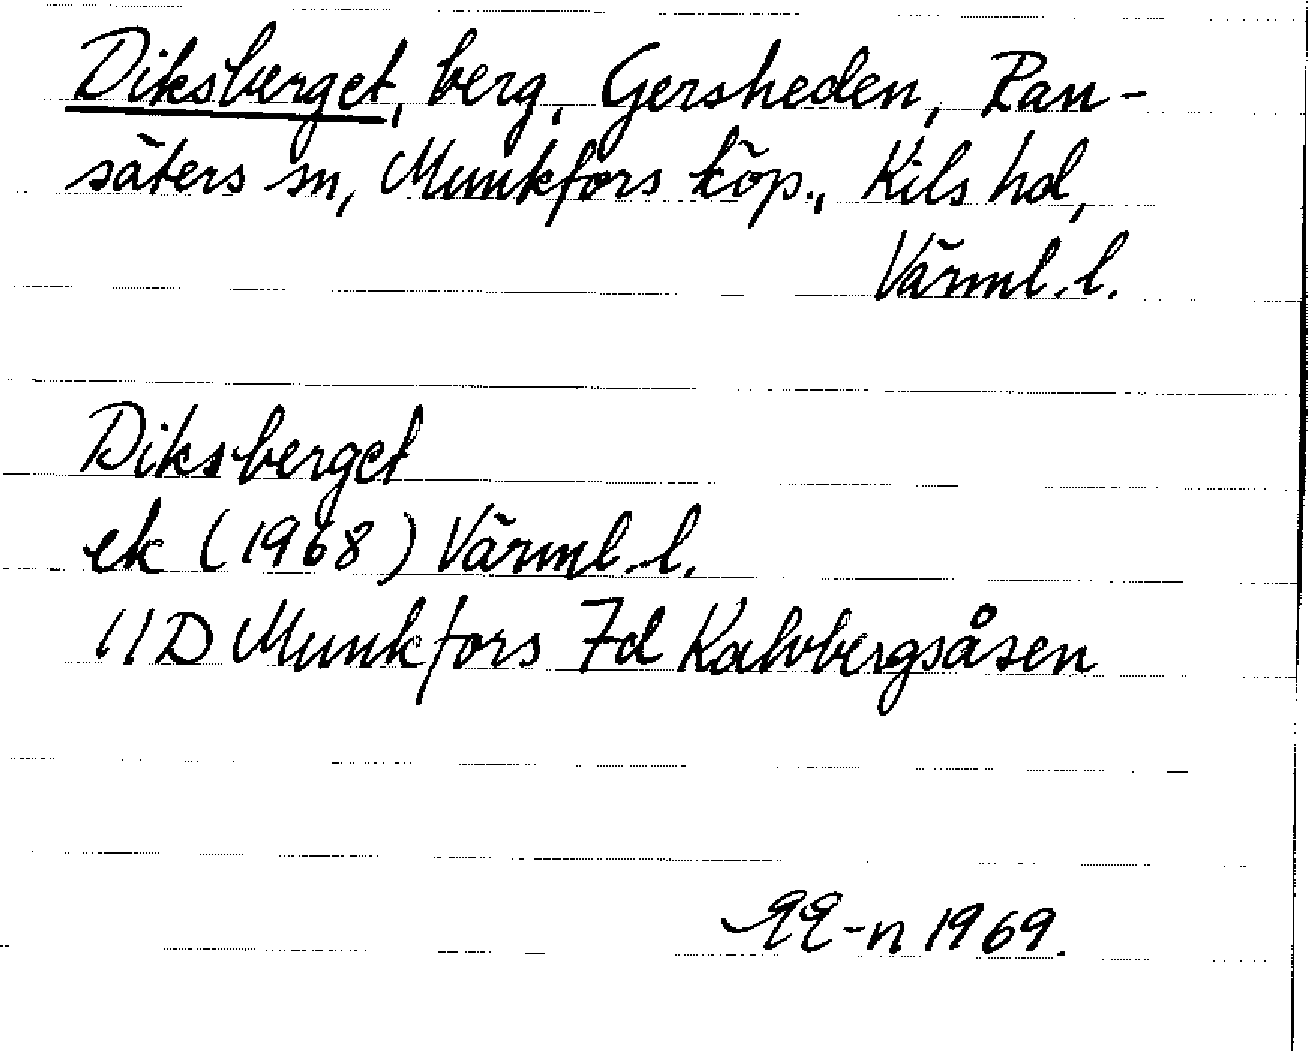 Diksberget, berg, Gersheden, Ran-
säters sn, Munkfors köp., Kils hd,
Värml. l.
Diksberget
ek (1968) Värml. l.
11D Munkfors 7d Kalvbergsåsen
1969.